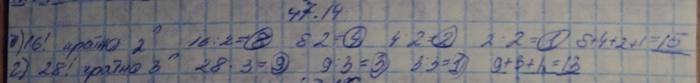 47.14
б) 16! кратно 2ⁿ 16:2=8 8:2=4 4:2=2 2:2=1 8+4+2+1=15
г) 28! кратно 3ⁿ 28:3=9 9:3=3 3:3=1 9+3+1=13